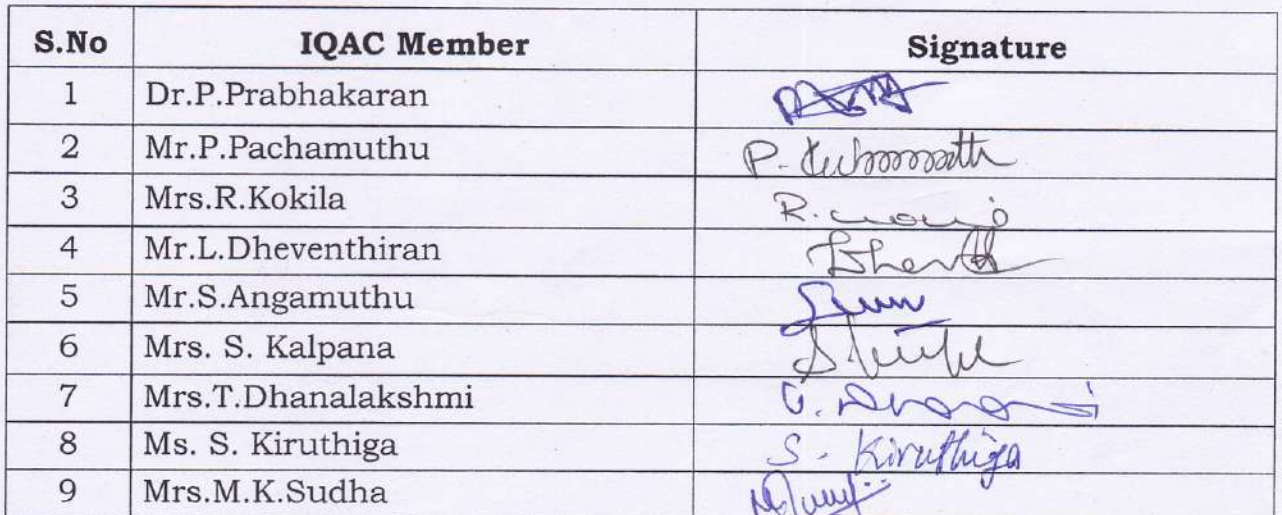 S.No IQAC Member Signature
1 Dr.P.Prabhakaran
2 Mr.P.Pachamuthu P.
3 Mrs.R.Kokila R.
4 Mr.L.Dheventhiran
5 Mr.S.Angamuthu
6 Mrs. S. Kalpana
7 Mrs.T.Dhanalakshmi
8 Ms. S. Kiruthiga S. Kiruthiga
9 Mrs.M.K.Sudha